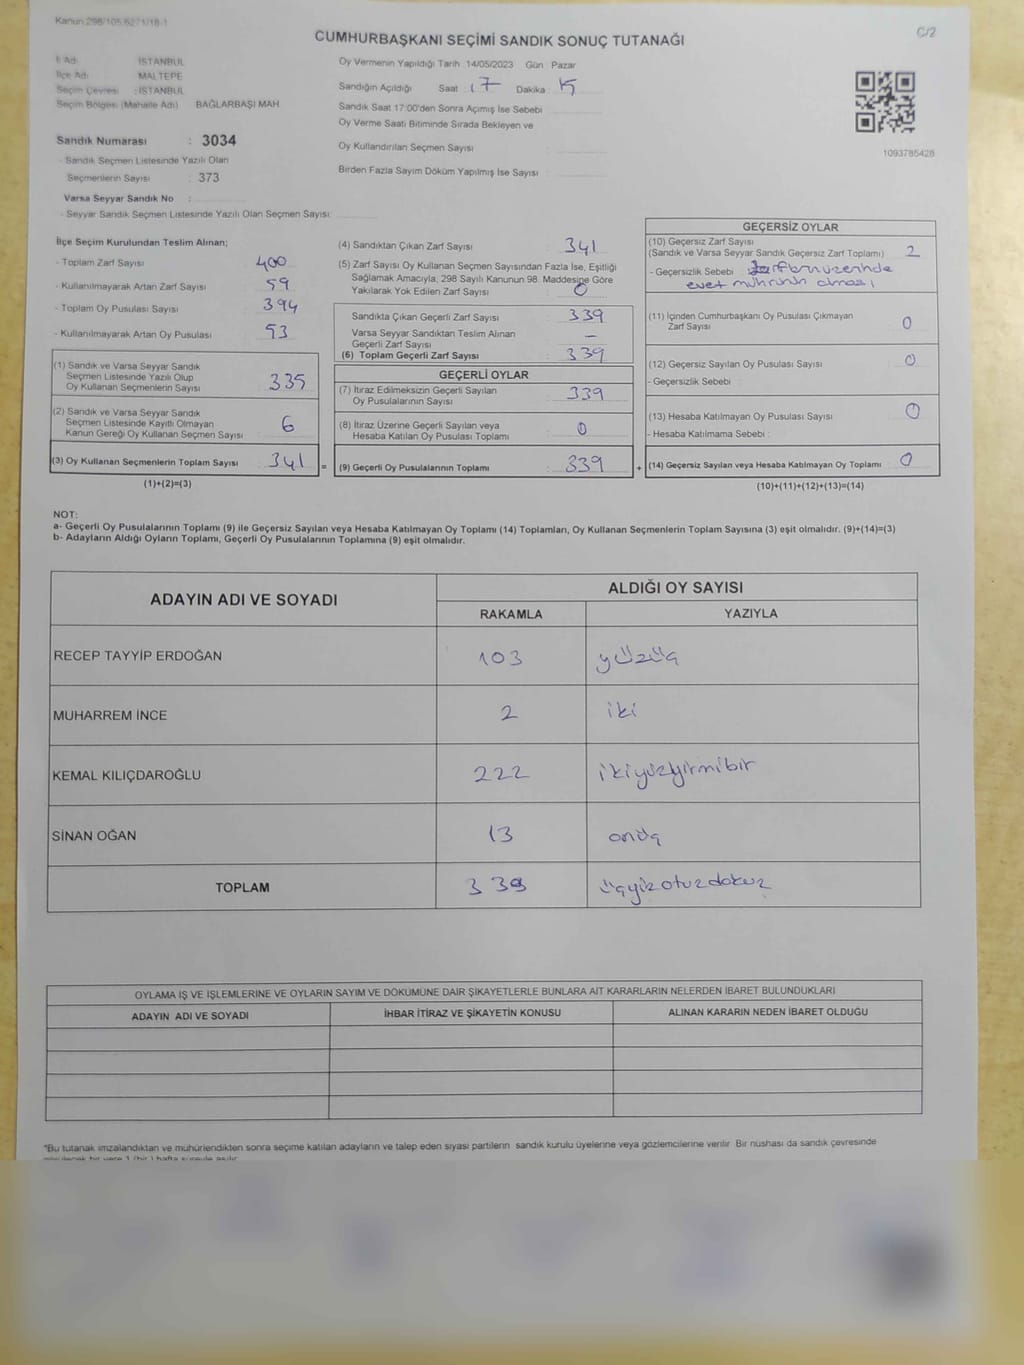 Kanun:298/105,6271/18-1
C/2
CUMHURBAŞKANI SEÇİMİ SANDIK SONUÇ TUTANAĞI
İl Adı : İSTANBUL
İlçe Adı : MALTEPE
Seçim Çevresi : İSTANBUL
Seçim Bölgesi (Mahalle Adı) BAĞLARBAŞI MAH
Sandık Numarası : 3034
- Sandık Seçmen Listesinde Yazılı Olan
Seçmenlerin Sayısı : 373
Varsa Seyyar Sandık No :
- Seyyar Sandık Seçmen Listesinde Yazılı Olan Seçmen Sayısı:
Oy Vermenin Yapıldığı Tarih :14/05/2023 Gün : Pazar
Sandığın Açıldığı Saat : 17 Dakika :
Sandık Saat 17:00'den Sonra Açımış İse Sebebi :
Oy Verme Saati Bitiminde Sırada Bekleyen ve
Oy Kullandırılan Seçmen Sayısı :
Birden Fazla Sayım Döküm Yapılmış İse Sayısı :
1093785428
İlçe Seçim Kurulundan Teslim Alınan;
- Toplam Zarf Sayısı : 400
- Kullanılmayarak Artan Zarf Sayısı : 59
- Toplam Oy Pusulası Sayısı : 394
- Kullanılmayarak Artan Oy Pusulası : 53
(1) Sandık ve Varsa Seyyar Sandık
Seçmen Listesinde Yazılı Olup
Oy Kullanan Seçmenlerin Sayısı : 335
(2) Sandık ve Varsa Seyyar Sandık
Seçmen Listesinde Kayıtlı Olmayan
Kanun Gereği Oy Kullanan Seçmen Sayısı : 6
(3) Oy Kullanan Seçmenlerin Toplam Sayısı : 341 =
(1)+(2)=(3)
(4) Sandıktan Çıkan Zarf Sayısı : 341
(5) Zarf Sayısı Oy Kullanan Seçmen Sayısından Fazla İse, Eşitliği
Sağlamak Amacıyla, 298 Sayılı Kanunun 98. Maddesine Göre
Yakılarak Yok Edilen Zarf Sayısı : 0
Sandıkta Çıkan Geçerli Zarf Sayısı : 339
Varsa Seyyar Sandıktan Teslim Alınan
Geçerli Zarf Sayısı : —
(6) Toplam Geçerli Zarf Sayısı : 339
GEÇERLİ OYLAR
(7) İtiraz Edilmeksizin Geçerli Sayılan
Oy Pusulalarının Sayısı : 339
(8) İtiraz Üzerine Geçerli Sayılan veya
Hesaba Katılan Oy Pusulası Toplamı : 0
(9) Geçerli Oy Pusulalarının Toplamı : 339 +
GEÇERSİZ OYLAR
(10) Geçersiz Zarf Sayısı
(Sandık ve Varsa Seyyar Sandık Geçersiz Zarf Toplamı) : 2
- Geçersizlik Sebebi : Zarfların üzerinde
evet mührünün olması
(11) İçinden Cumhurbaşkanı Oy Pusulası Çıkmayan
Zarf Sayısı : 0
(12) Geçersiz Sayılan Oy Pusulası Sayısı : 0
- Geçersizlik Sebebi :
(13) Hesaba Katılmayan Oy Pusulası Sayısı : 0
- Hesaba Katılmama Sebebi :
(14) Geçersiz Sayılan veya Hesaba Katılmayan Oy Toplamı : 0
(10)+(11)+(12)+(13)=(14)
NOT:
a- Geçerli Oy Pusulalarının Toplamı (9) ile Geçersiz Sayılan veya Hesaba Katılmayan Oy Toplamı (14) Toplamları, Oy Kullanan Seçmenlerin Toplam Sayısına (3) eşit olmalıdır. (9)+(14)=(3)
b- Adayların Aldığı Oyların Toplamı, Geçerli Oy Pusulalarının Toplamına (9) eşit olmalıdır.
ADAYIN ADI VE SOYADI
ALDIĞI OY SAYISI
RAKAMLA YAZIYLA
RECEP TAYYİP ERDOĞAN 103 yüzüç
MUHARREM İNCE 2 iki
KEMAL KILIÇDAROĞLU 222 ikiyüzyirmibir
SİNAN OĞAN 13 onüç
TOPLAM 339 üçyüzotuzdokuz
OYLAMA İŞ VE İŞLEMLERİNE VE OYLARIN SAYIM VE DÖKÜMÜNE DAİR ŞİKAYETLERLE BUNLARA AİT KARARLARIN NELERDEN İBARET BULUNDUKLARI
ADAYIN ADI VE SOYADI İHBAR İTİRAZ VE ŞİKAYETİN KONUSU ALINAN KARARIN NEDEN İBARET OLDUĞU
*Bu tutanak imzalandıktan ve mühürlendikten sonra seçime katılan adayların ve talep eden siyasi partilerin sandık kurulu üyelerine veya gözlemcilerine verilir. Bir nüshası da sandık çevresinde